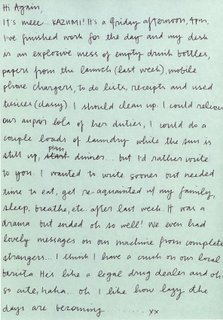 Hi Again,
It's meee. KAZUMI! It's a friday afternoon, 4pm,
I've finished work for the day and my desk
is an explosive mess of empty drink bottles,
papers from the launch (last week), mobile
phone chargers, to do lists, receipts and used
tissues (classy). I should clean up. I could relieve
our aupair lola of her duties, I could do a
couple loads of laundry while the sun is
still up, plan dinner... but I'd rather write
to you. I wanted to write sooner but needed
time to eat, get re-aquainted w/ my family,
sleep, breathe, etc. after last week. It was a
drama but ended oh so well! We even had
lovely messages on our machine from complete
strangers... I think I have a crush on our local
barista. He's like a legal drug dealer and oh
so cute, haha. oh I like how lazy the
days are becoming ..... xx